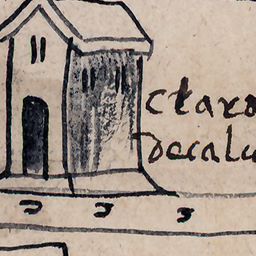 claro
decalu